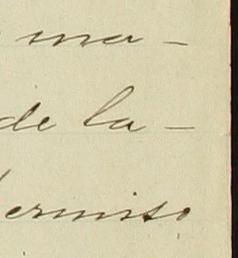 ma-
de la-
permiso